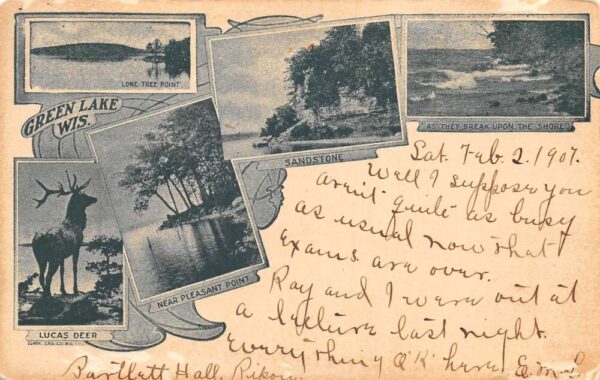 LONE TREE POINT
GREEN LAKE
WIS.
SANDSTONE
"AS THEY BREAK UPON THE SHORE"
NEAR PLEASANT POINT
LUCAS DEER
Sat. Feb. 2. 1907.
Well I suppose you
aren't quite as busy
as usual now that
exams are over.
Ray and I were out at
a lecture last night.
Everything O'K' here. E.M.B
Bartlett Hall, Ripon.